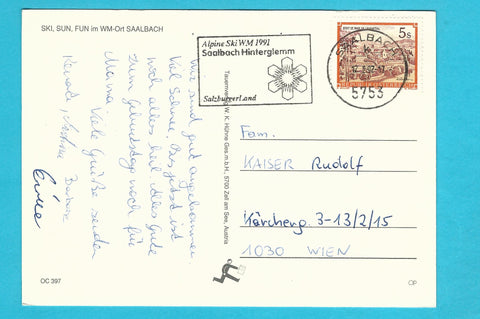 SKI, SUN, FUN im WM-Ort SAALBACH
Wir sind gut angekommen
Viel Schnee. Bis jetzt ist
noch alles heil. Alles Gute
zum Geburtstag noch für
Mama. Viele Grüße senden
Barbara
OC 397
Tauernverlag W. K. Hühne Ges.m.b.H., 5700 Zell am See, Austria
Alpine Ski WM 1991
Saalbach Hinterglemm
SalzburgerLand
SAALBACH
5753
5s
Fam.
KAISER Rudolf
Kärcherg. 3-13/2/15
1030 WIEN
OP